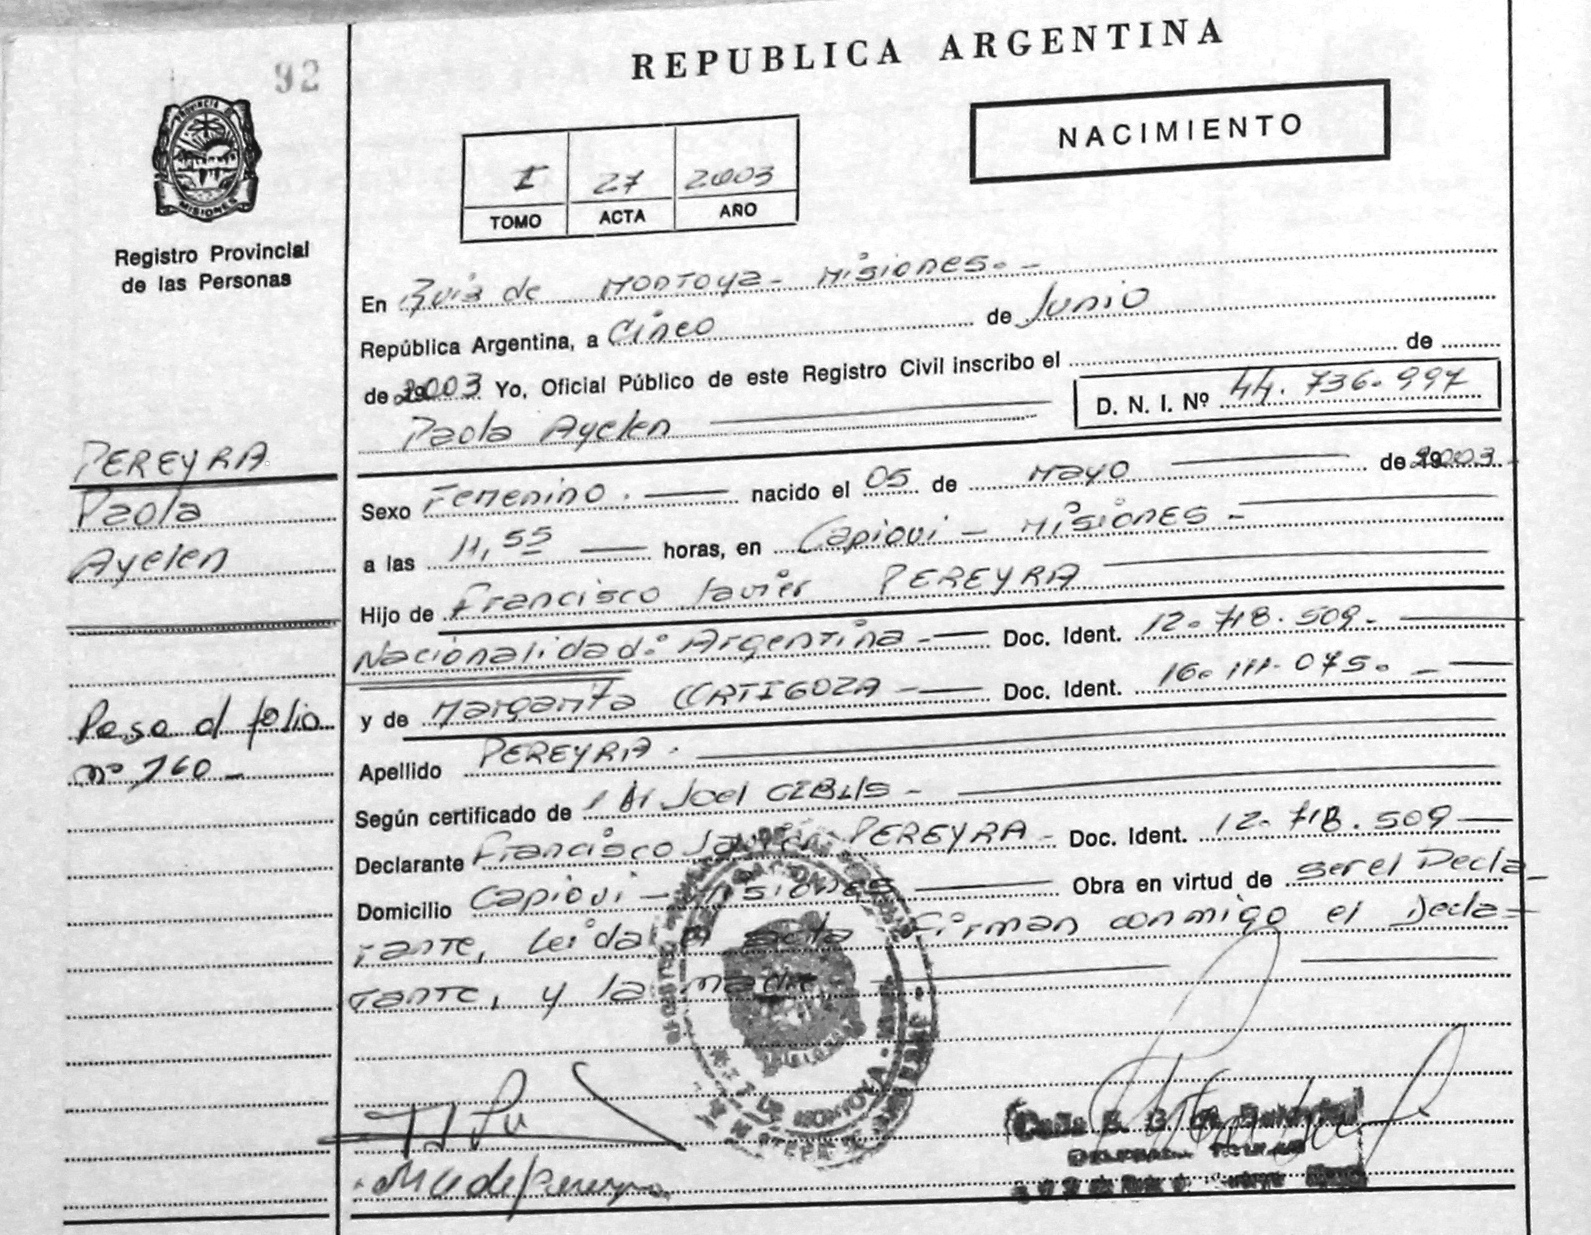 92
REPUBLICA ARGENTINA
NACIMIENTO
I 27 2003
TOMO ACTA AÑO
PROVINCIA DE
MISIONES
Registro Provincial
de las Personas
En Ruiz de Montoya - Misiones. -
República Argentina, a Cinco de Junio
de 2003 Yo, Oficial Público de este Registro Civil inscribo el de
D. N. I. Nº 44.736.997
Paola Ayelen
PEREYRA
Paola
Ayelen
Sexo Femenino. nacido el 05 de Mayo de 2003
a las 11,55 horas, en Capiovi - Misiones -
Hijo de Francisco Javier PEREYRA
Nacionalidad: Argentina - Doc. Ident. 12.718.509.-
y de Margarita ORTIGOZA - Doc. Ident. 16.111.075. -
Pasa al folio
nº 160 -
Apellido PEREYRA.
Según certificado de Joel CIBILS -
Declarante Francisco Javier PEREYRA - Doc. Ident. 12.718.509
Domicilio Capiovi - Misiones Obra en virtud de ser el Decla-
rante, Leida el acta firman conmigo el Decla-
rante, y la madre
DE MONTOYA